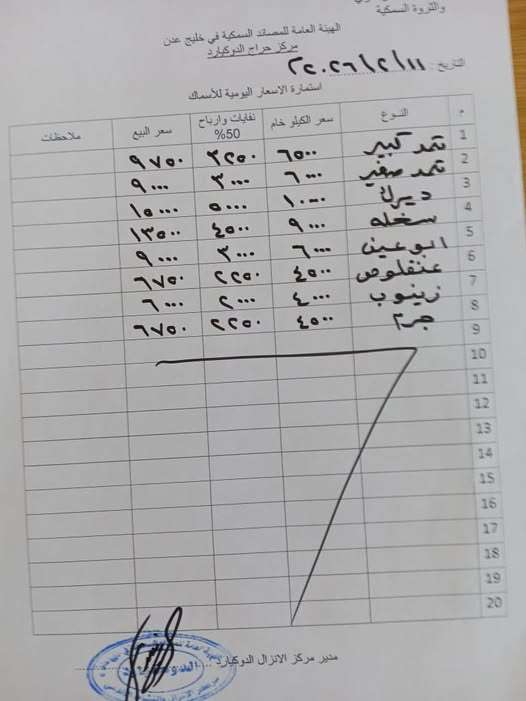 والثروة السمكية
الهيئة العامة للمصائد السمكية في خليج عدن
مركز حراج الدوكيارد
التاريخ : ١١/٢/٢٠٢٦م
استمارة الاسعار اليومية للأسماك
م النوع سعر الكيلو خام نفايات وارباح 50% سعر البيع ملاحظات
1 ثمد كبير ٦٥٠٠ ٣٢٥٠ ٩٧٥٠
2 ثمد صغير ٦٠٠٠ ٣٠٠٠ ٩٠٠٠
3 ديرك ١٠٠٠٠ ٥٠٠٠ ١٥٠٠٠
4 سخله ٩٠٠٠ ٤٥٠٠ ١٣٥٠٠
5 ابو عين ٦٠٠٠ ٣٠٠٠ ٩٠٠٠
6 عنفلوص ٤٥٠٠ ٢٢٥٠ ٦٧٥٠
7 زينوب ٤٠٠٠ ٢٠٠٠ ٦٠٠٠
8 جرم ٤٥٠٠ ٢٢٥٠ ٦٧٥٠
9
10
11
12
13
14
15
16
17
18
19
20
مدير مركز الانزال الدوكيارد